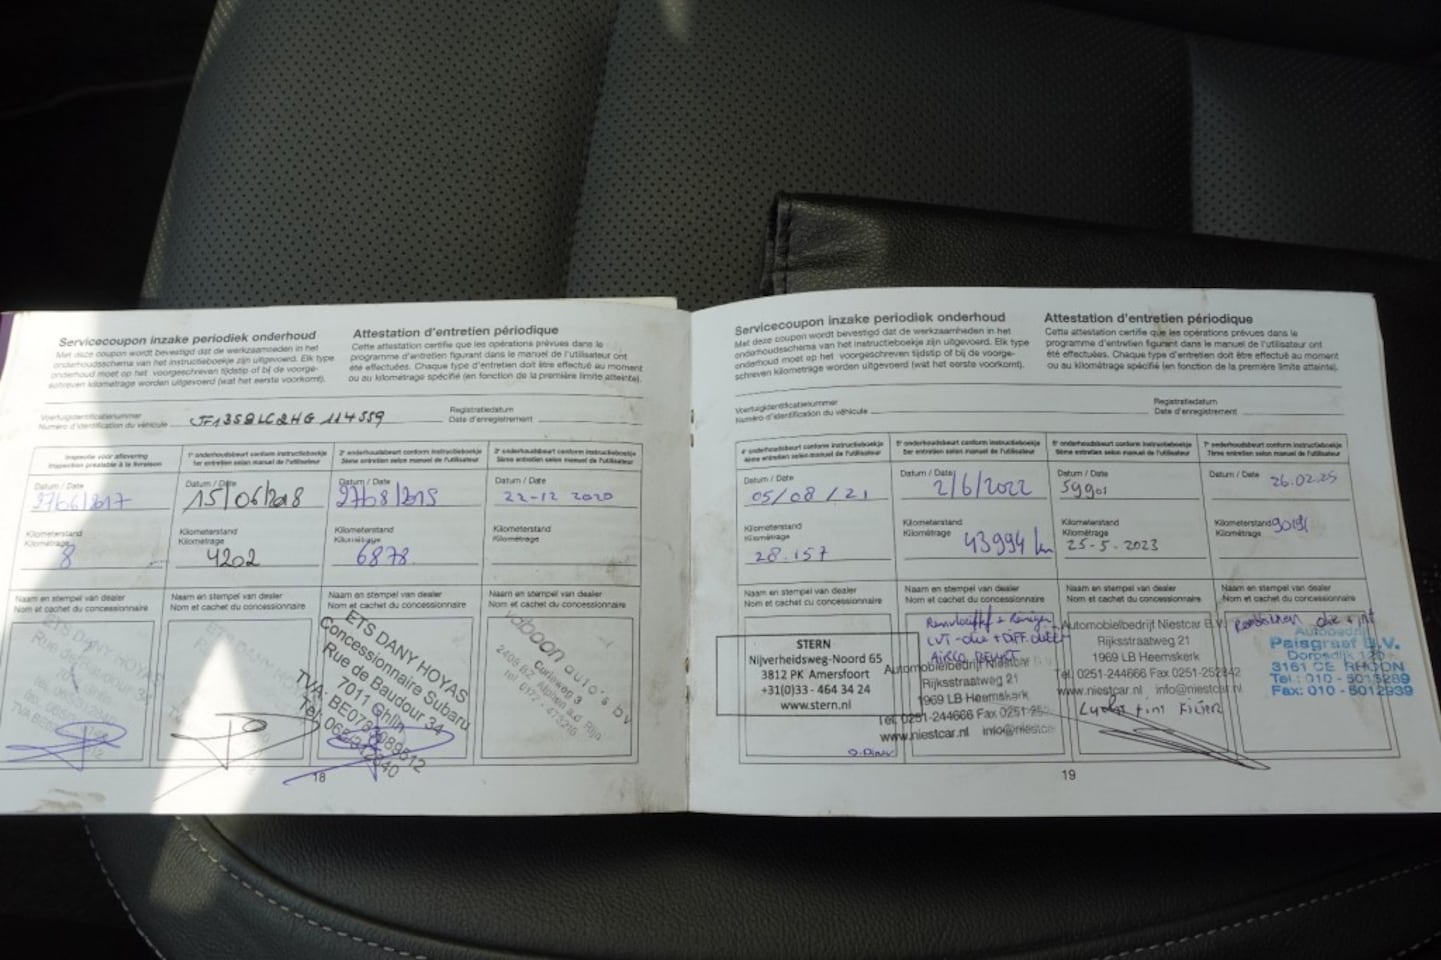 Servicecoupon inzake periodiek onderhoud
Met deze coupon wordt bevestigd dat de werkzaamheden in het
onderhoudsschema van het instructieboekje zijn uitgevoerd. Elk type
onderhoud moet op het voorgeschreven tijdstip of bij de voorge-
schreven kilometrage worden uitgevoerd (wat het eerste voorkomt).
Attestation d'entretien périodique
Cette attestation certifie que les opérations prévues dans le
programme d'entretien figurant dans le manuel de l'utilisateur ont
été effectuées. Chaque type d'entretien doit être effectué au moment
ou au kilométrage spécifié (en fonction de la première limite atteinte).
Voertuigidentificatienummer
Numéro d'identification du véhicule
Registratiedatum
Date d'enregistrement
Inspectie vóór aflevering
Inspection préalable à la livraison
1e onderhoudsbeurt conform instructieboekje
1er entretien selon manuel de l'utilisateur
2e onderhoudsbeurt conform instructieboekje
2ème entretien selon manuel de l'utilisateur
3e onderhoudsbeurt conform instructieboekje
3ème entretien selon manuel de l'utilisateur
Datum / Date
27/06/2017
Datum / Date
15/06/2018
Datum / Date
Datum / Date
22-12 2020
Kilometerstand
Kilométrage
8
Kilometerstand
Kilométrage
4202
Kilometerstand
Kilométrage
6878
Kilometerstand
Kilométrage
Naam en stempel van dealer
Nom et cachet du concessionnaire
ETS DANY HOYAS
Naam en stempel van dealer
Nom et cachet du concessionnaire
Naam en stempel van dealer
Nom et cachet du concessionnaire
ETS DANY HOYAS
Concessionnaire Subaru
Rue de Baudour 34
7011 Ghlin
Naam en stempel van dealer
Nom et cachet du concessionnaire
auto's bv
Curieweg 3
Alphen a.d. Rijn
18
Servicecoupon inzake periodiek onderhoud
Met deze coupon wordt bevestigd dat de werkzaamheden in het
onderhoudsschema van het instructieboekje zijn uitgevoerd. Elk type
onderhoud moet op het voorgeschreven tijdstip of bij de voorge-
schreven kilometrage worden uitgevoerd (wat het eerste voorkomt).
Attestation d'entretien périodique
Cette attestation certifie que les opérations prévues dans le
programme d'entretien figurant dans le manuel de l'utilisateur ont
été effectuées. Chaque type d'entretien doit être effectué au moment
ou au kilométrage spécifié (en fonction de la première limite atteinte).
Voertuigidentificatienummer
Numéro d'identification du véhicule
Registratiedatum
Date d'enregistrement
4e onderhoudsbeurt conform instructieboekje
4ème entretien selon manuel de l'utilisateur
5e onderhoudsbeurt conform instructieboekje
entretien selon manuel de l'utilisateur
6e onderhoudsbeurt conform instructieboekje
6ème entretien selon manuel de l'utilisateur
7e onderhoudsbeurt conform instructieboekje
7ème entretien selon manuel de l'utilisateur
Datum / Date
05/08/21
Datum / Date
2/6/2022
Datum / Date
Datum / Date
26.02.25
Kilometerstand
Kilométrage
28.157
Kilometerstand
Kilométrage
43994 km
Kilometerstand
Kilométrage
25-5-2023
Kilometerstand
Kilométrage
Naam en stempel van dealer
Nom et cachet du concessionnaire
STERN
Nijverheidsweg-Noord 65
3812 PK Amersfoort
+31(0)33 - 464 34 24
www.stern.nl
Naam en stempel van dealer
Nom et cachet du concessionnaire
Automobielbedrijf Niestcar
Rijksstraatweg 21
1969 LB Heemskerk
Tel. 0251-244666 Fax
www.niestcar.nl
Naam en stempel van dealer
Nom et cachet du concessionnaire
Automobielbedrijf Niestcar B.V.
Rijksstraatweg 21
1969 LB Heemskerk
Tel. 0251-244666 Fax 0251-252842
www.niestcar.nl info@niestcar.nl
Naam en stempel van dealer
Nom et cachet du concessionnaire
Autobedrijf
Paisgraaf B.V.
Dorpsdijk
3161 CE RHOON
Tel.: 010 - 5015289
Fax: 010 - 5012939
19